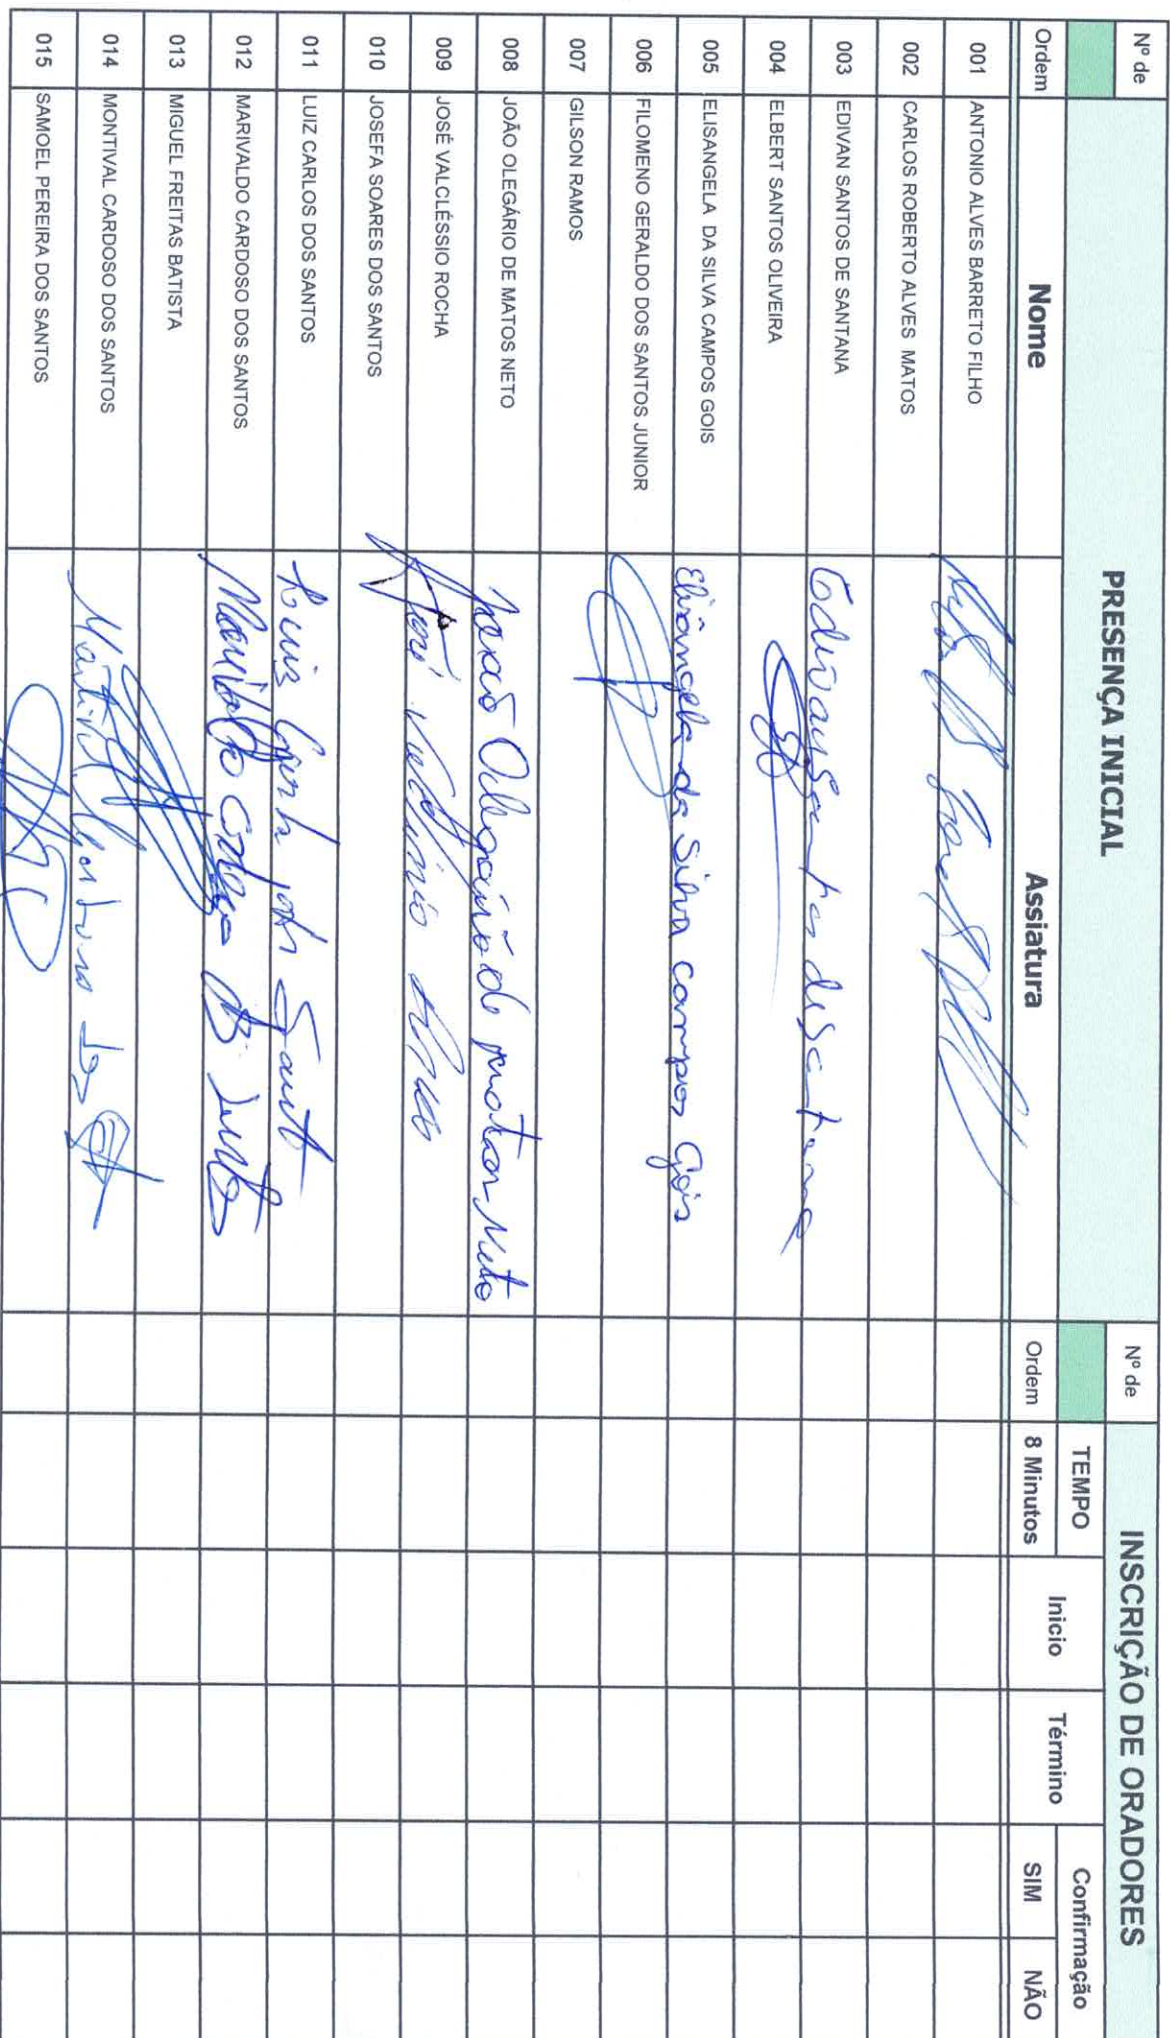 Nº de PRESENÇA INICIAL Nº de INSCRIÇÃO DE ORADORES
Ordem Nome Assiatura Ordem TEMPO 8 Minutos Inicio Término Confirmação SIM NÃO
001 ANTONIO ALVES BARRETO FILHO
002 CARLOS ROBERTO ALVES MATOS
003 EDIVAN SANTOS DE SANTANA Edivan Santos de Santana
004 ELBERT SANTOS OLIVEIRA
005 ELISANGELA DA SILVA CAMPOS GOIS Elisângela da Silva campos Gois
006 FILOMENO GERALDO DOS SANTOS JUNIOR
007 GILSON RAMOS
008 JOÃO OLEGÁRIO DE MATOS NETO João Olegário de matos Neto
009 JOSÉ VALCLÉSSIO ROCHA José
010 JOSEFA SOARES DOS SANTOS
011 LUIZ CARLOS DOS SANTOS Luiz
012 MARIVALDO CARDOSO DOS SANTOS Marivaldo
013 MIGUEL FREITAS BATISTA
014 MONTIVAL CARDOSO DOS SANTOS
015 SAMOEL PEREIRA DOS SANTOS